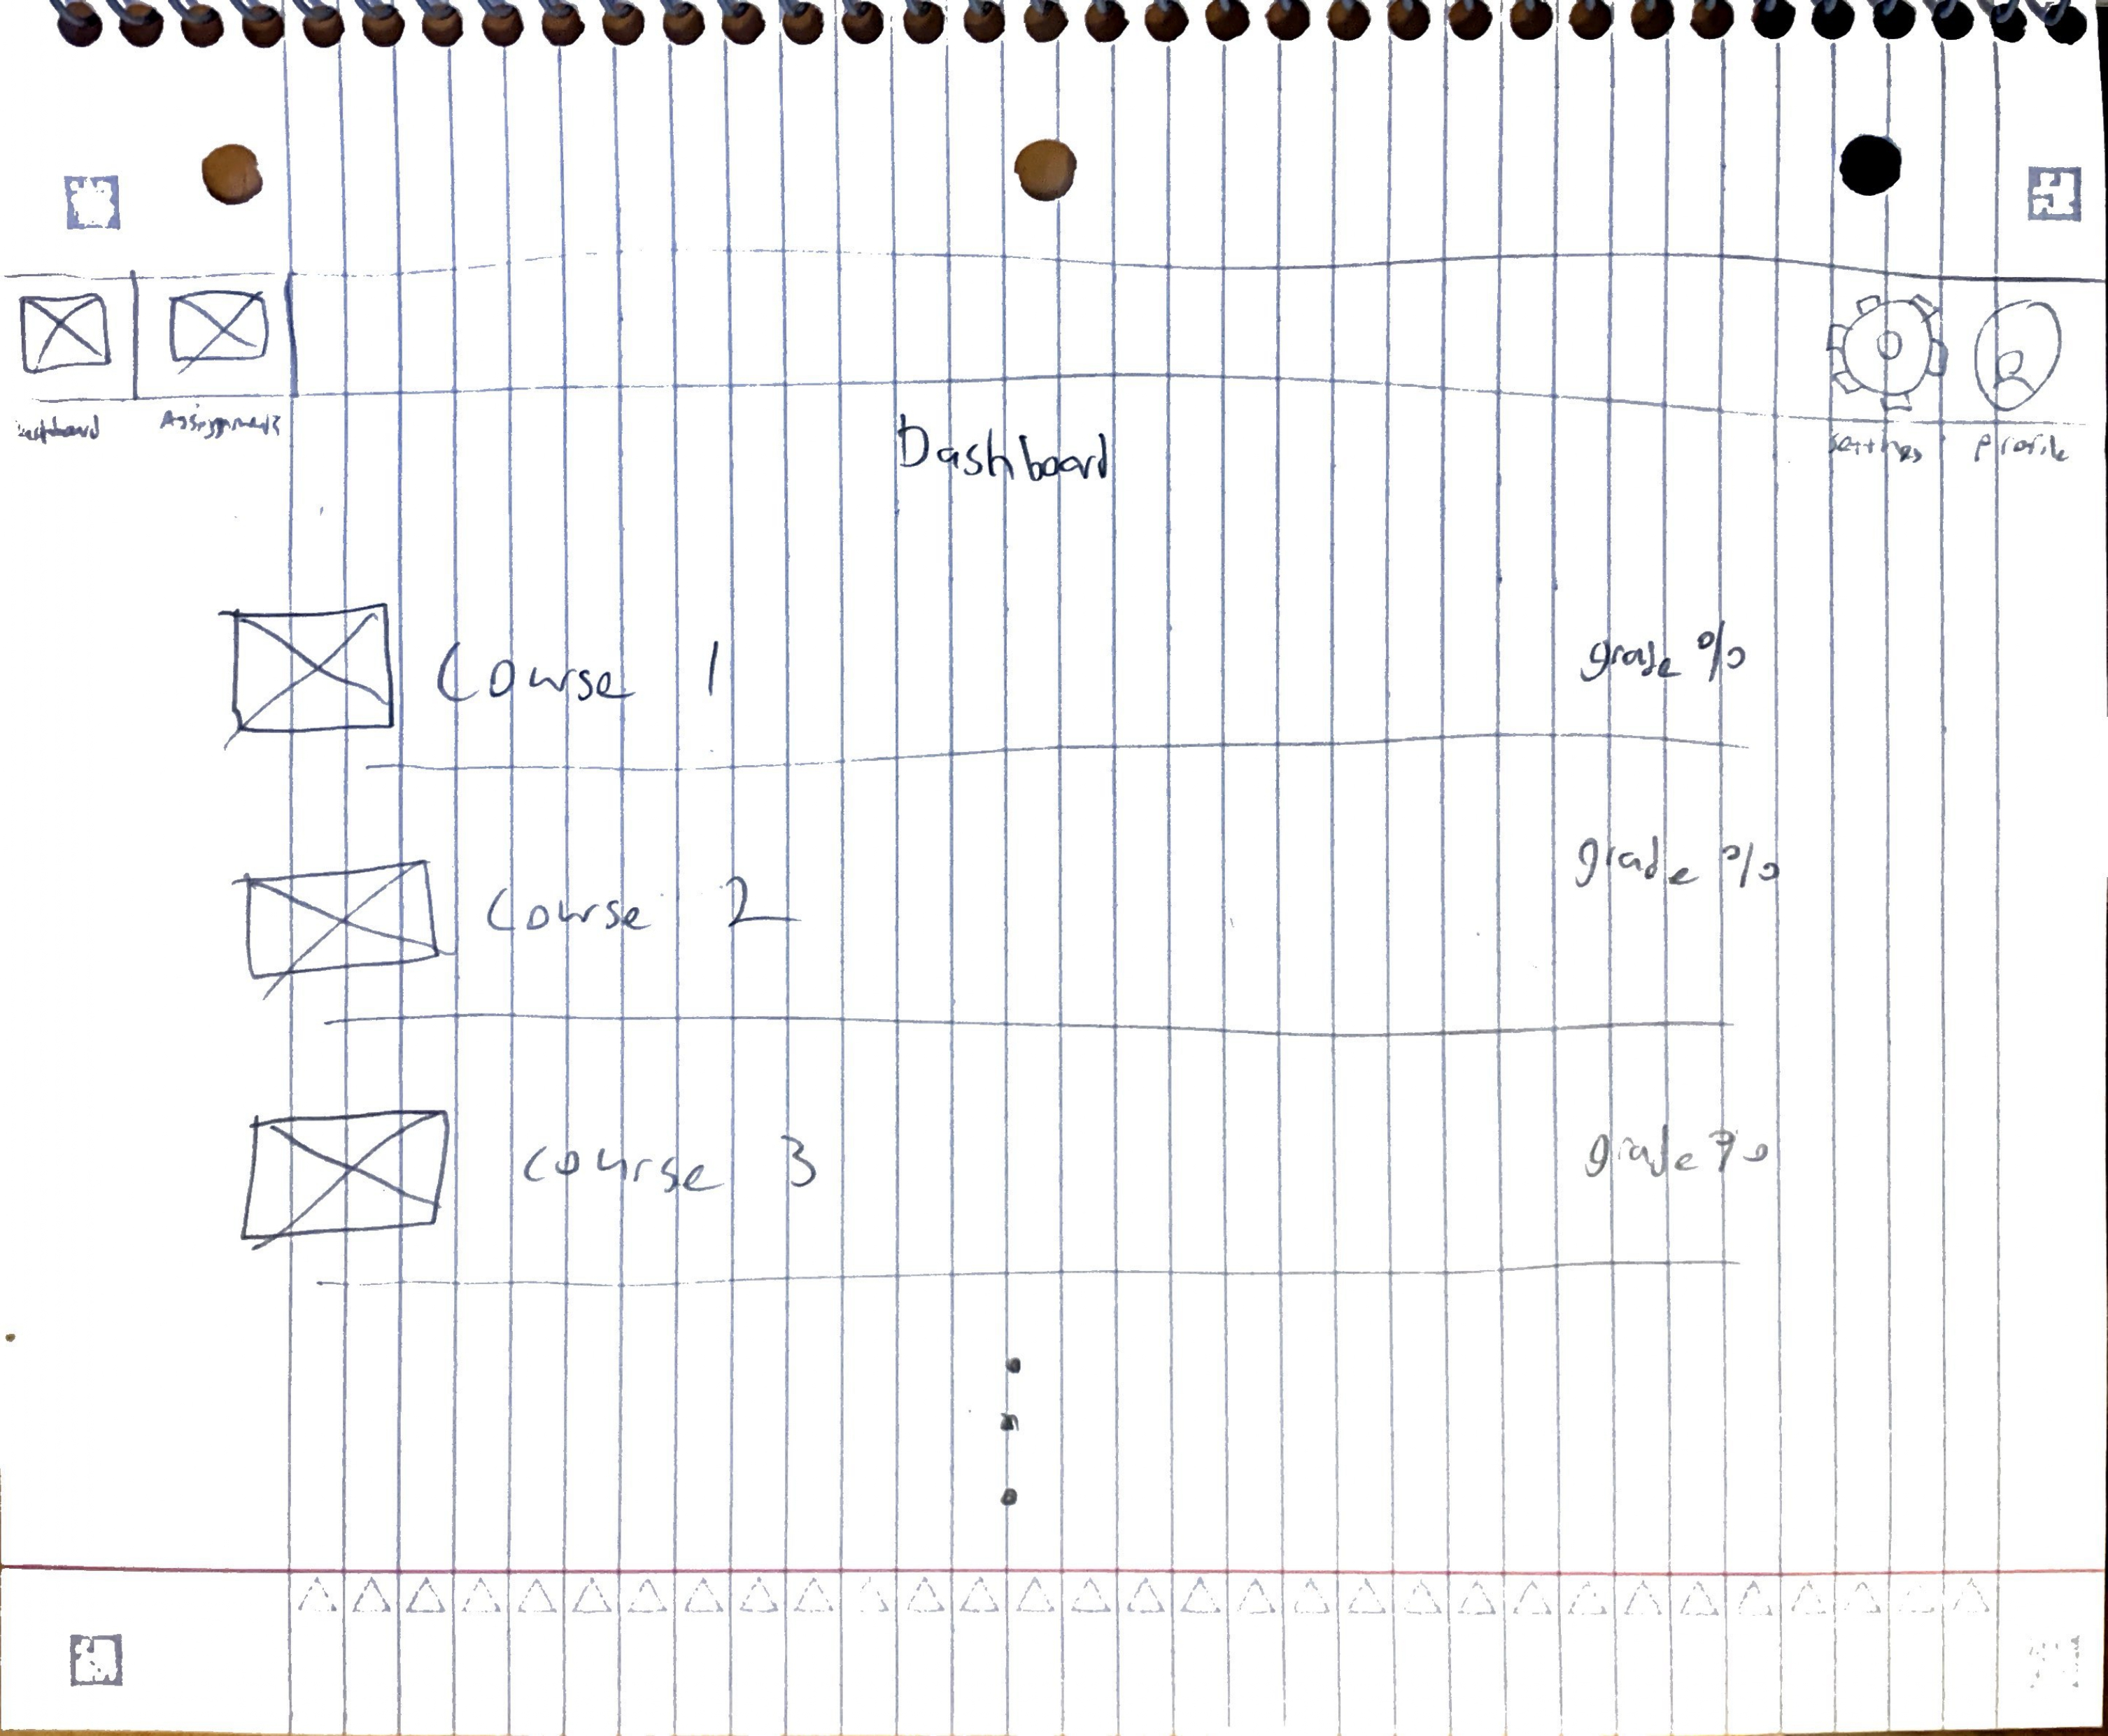 Assignments
settings profile
Dashboard
Course 1 grade %
Course 2 grade %
course 3 grade %